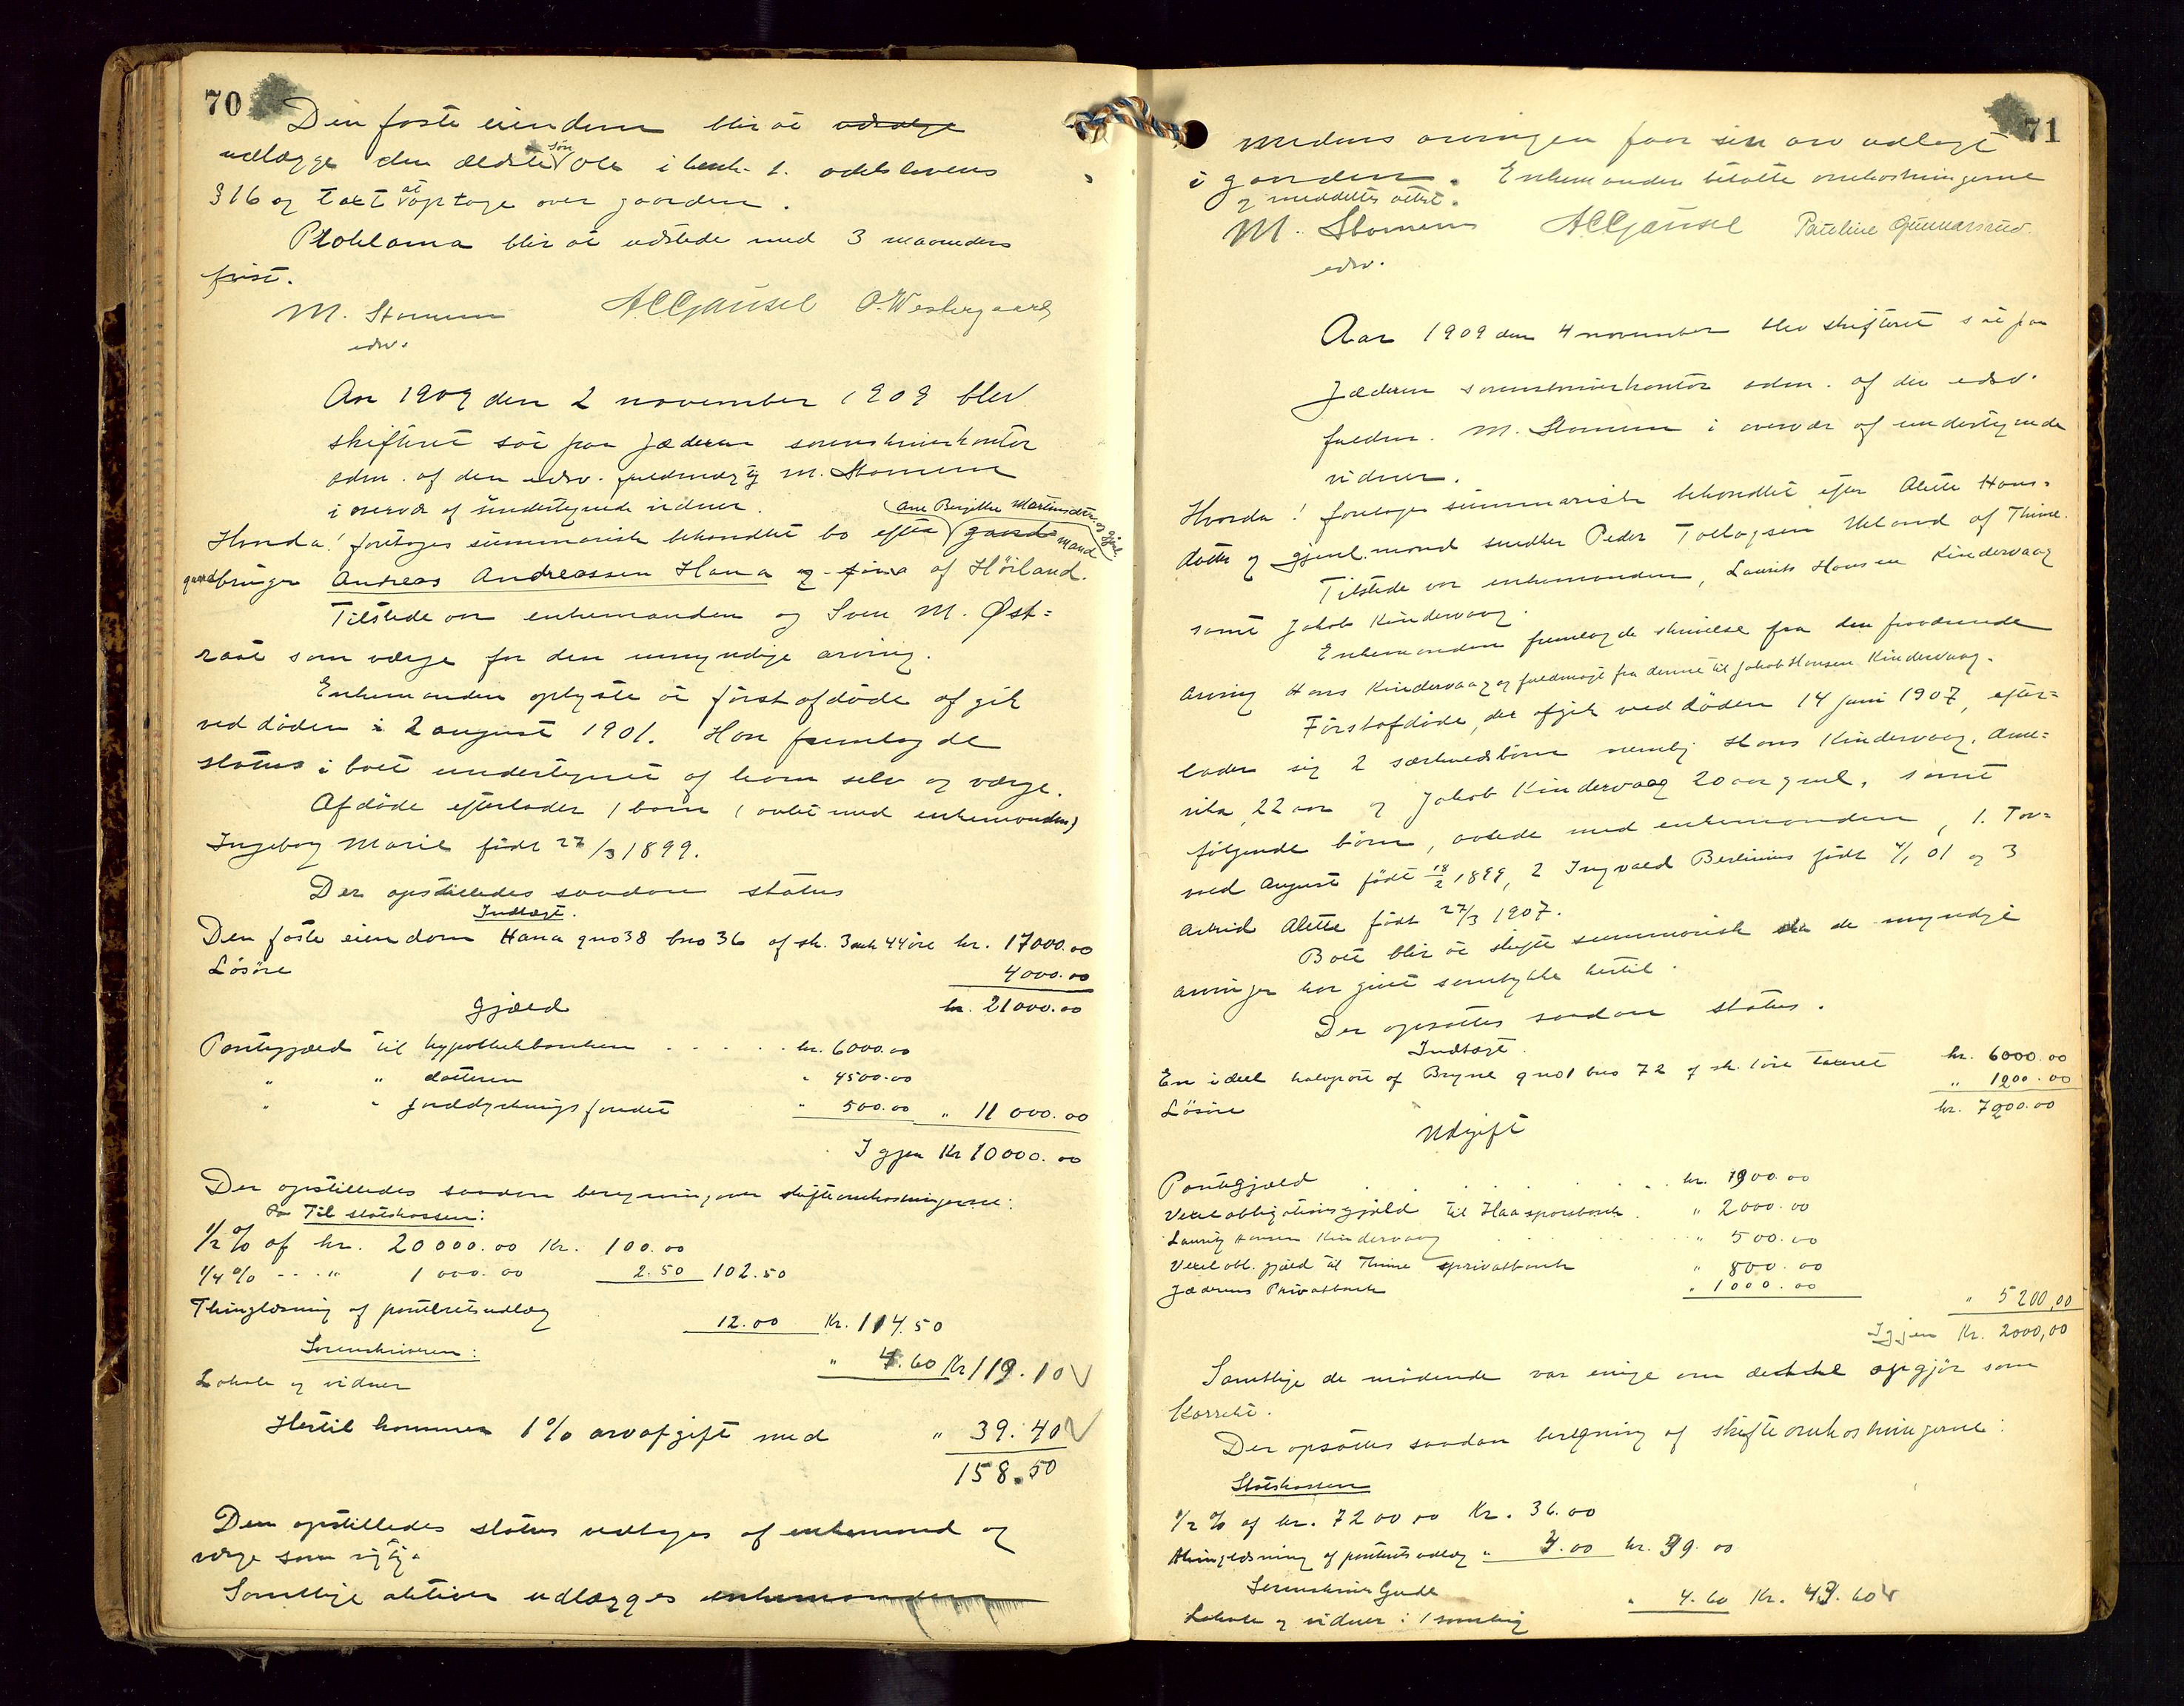 70
Den faste eiendom blir at udlægge
udlægge den ældste søn Ole i henh. t. odelslovens
§ 16 og taxt at optage over gaarden.
Proklama blir at udstede med 3 maaneders
frist.
M. Stomem A C Gausel O. Westergaard
edsv.
Aar 1909 den 2 november 1909 blev
skifteret sat paa Jæderen sorenskriverkontor
adm. af den edsv. fuldmægtig M. Stomem
i overvær af undertegnede vidner.
Ane Birgitte Martinsdtr. og gjenl.
Hvorda! foretoges summarisk behandlet bo efter gaard mand
gaardbruger Andreas Andreassen Hana og af Höiland.
Tilstede var enkemanden og Sven M. Øst-
raat som værge for den umyndige arving.
Enkemanden oplyste at först afdöde afgik
ved döden 2 august 1901. Han fremlagde
status i boet undertegnet af ham selv og værge.
Afdöde efterlader 1 barn (avlet med enkemanden)
Ingeborg Marie född 27/3 1899.
Der opstilledes saadan status
Indtægt.
Den faste eiendom Hana gno 38 bno 36 af sk. 3 mk 44 öre kr. 17000.00
Lösöre 4000.00
kr. 21000.00
Gjæld
Pantegjæld til hypothekbanken . . . . . kr. 6000.00
" " datteren " 4500.00
" " jorddyrkningsfondet " 500.00 " 11 000.00
Igjen Kr 10000.00
Der opstilledes saadan beregning over skifteomkostningerne:
Til statskassen:
1/2 % af kr. 20000.00 Kr. 100.00
1/4 % - - . " 1 000.00 2.50 102.50
Thinglæsning af panteretsudlæg 12.00 Kr. 114.50
Sorenskriveren:
Lokale og vidner " 4.60 Kr 119.10
Hertil kommer 1 % arvafgift med " 39.40
158.50
Den opstilledes status vedtoges af enkemand og
værge som rigtig.
Samtlige aktiver udlægges enkemanden
71
medens arvingen faar sin arv udlagt
i gaarden. Enkemanden betalte omkostningerne
og meddeltes attest.
M. Stomem A C Gausel Pauline Gunnarsrud.
edsv.
Aar 1909 den 4 november blev skifteret sat paa
Jæderen sorenskriverkontor adm. af den edsv.
fuldm. M. Stomem i overvær af undertegnede
vidner.
Hvorda! foretoges summarisk behandlet efter Alette Hans-
datter og gjenl. mand snedker Peder Tollagsen Ueland af Thime.
Tilstede var enkemanden, Laurits Hansen Kindervaag
samt Jakob Kindervaag.
Enkemanden fremlagde skrivelse fra den fraværende
arving Hans Kindervaag og fuldmagt fra denne til Jakob Hansen Kindervaag.
Förstafdöde, der afgik ved döden 14 juni 1907, efter-
lader sig 2 særkuldsbörn nemlig Hans Kindervaag, Ame-
rika, 22 aar og Jakob Kindervaag 20 aar gml., samt
fölgende börn, avlede med enkemanden, 1. Tor-
vald August födt 18/2 1899, 2 Ingvald Berlinius födt 4/1 01 og 3
Astrid Alette födt 27/3 1907.
Boet blir at skifte summarisk da de myndige
arvinger har givet samtykke hertil.
Der opsattes saadan status.
Indtægt.
En ideel halvpart af Bryne gno 1 bno 72 af sk. 1 öre taxeret kr. 6000.00
Lösöre " 1200.00
kr. 7200.00
Udgift
Pantegjæld . . . . . . kr. 1900.00
Vexelobligationsgjæld til Haa sparebank . " 2000.00
Laurits Hansen Kindervaag " 500.00
Vexelobl. gjæld til Thime privatbank " 800.00
Jæderens Privatbank " 1000.00
" 5200,00
Igjen Kr. 2000,00
Samtlige de mødende var enige om dette opgjör som
korrekt.
Der opsattes saadan beregning af skifteomkostningerne:
Statskassen
1/2 % af kr. 7200.00 Kr. 36.00
Thinglæsning af panteretsudlæg " 3.00 kr. 39.00
Sorenskriver Gude
Lokale og vidner i 1 samling " 4.60 Kr. 43.60